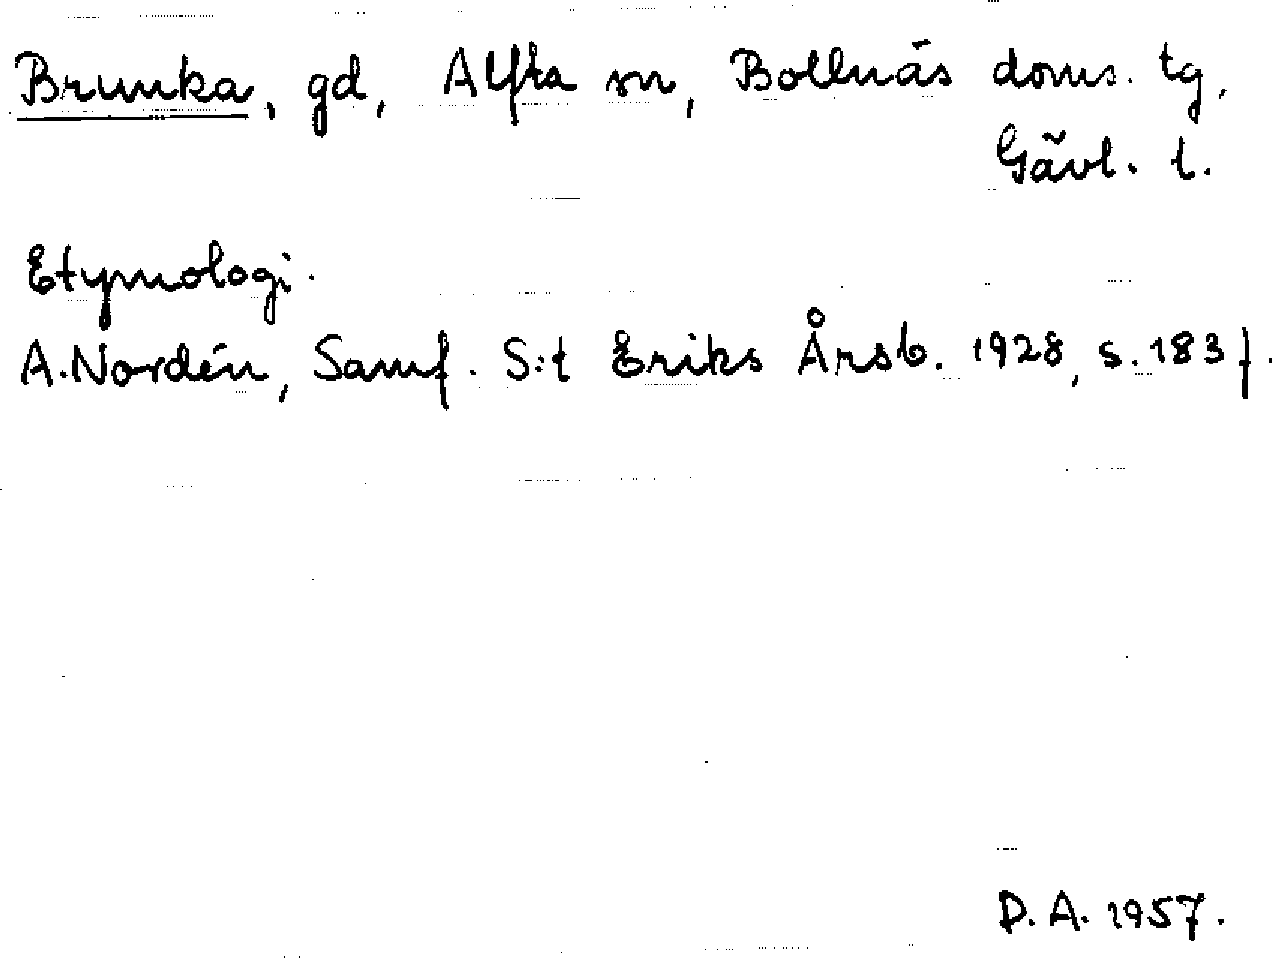 Brunka, gd, Alfta sn, Bollnäs doms. tg,
Gävl. l.
Etymologi.
A. Nordén, Samf. S:t Eriks Årsb. 1928, s. 183 f.
D. A. 1957.